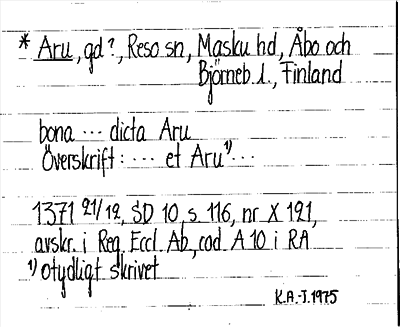 * Aru, gd?, Reso sn, Masku hd, Åbo och
Björneb. l., Finland
bona ... dicta Aru
Överskrift: .... et Aru¹)...
1371 21/12, SD 10 s. 116, nr X 121,
avskr. i Reg. Eccl. Ab, cod. A 10 i RA
¹) otydligt skrivet
K.A.-J. 1975